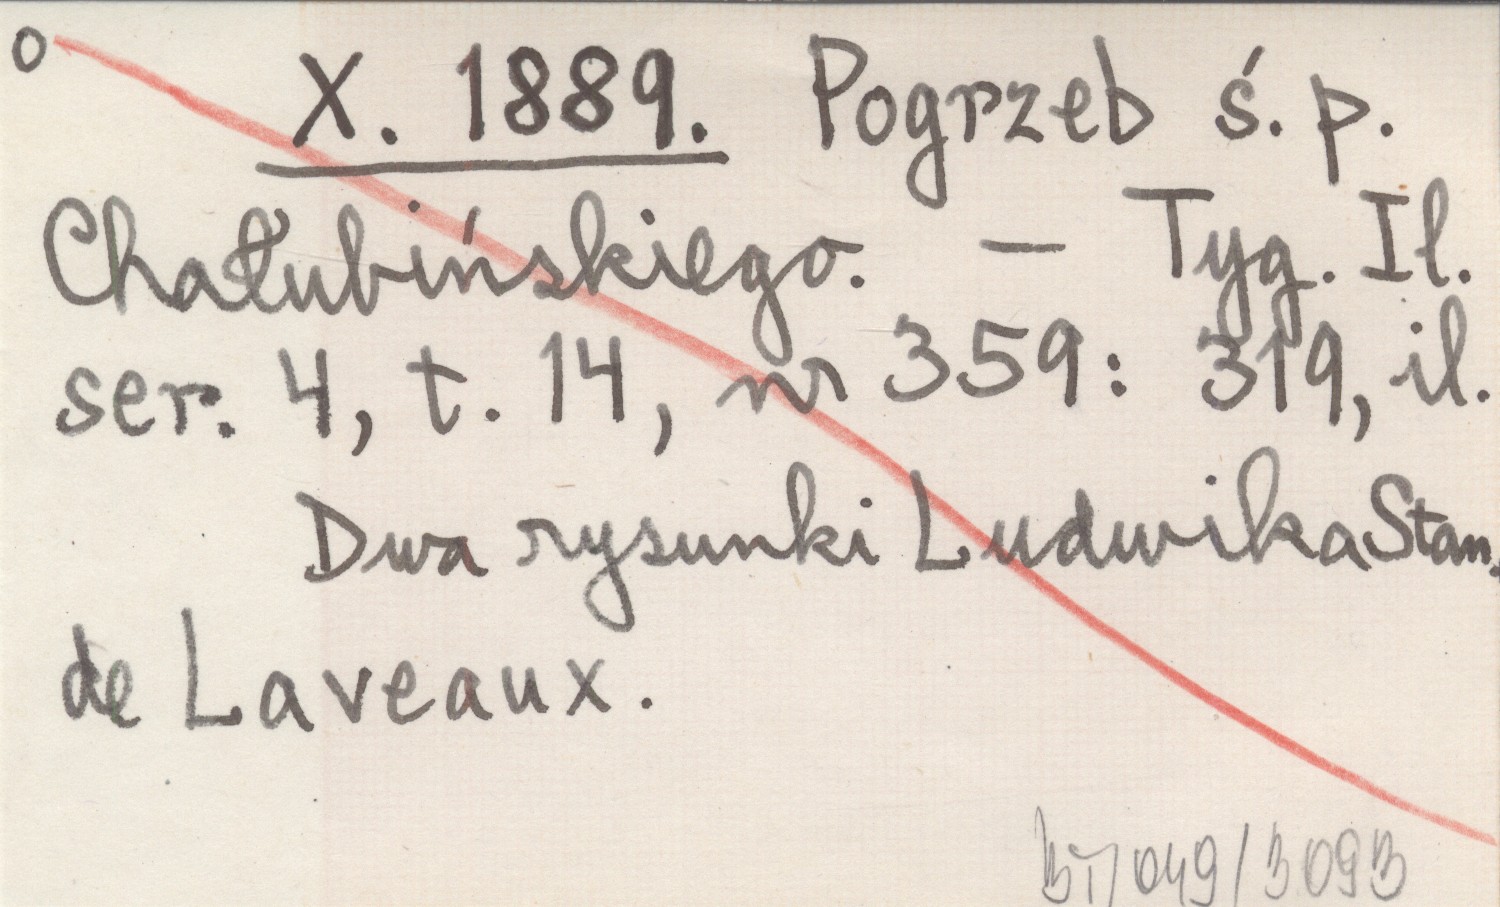 o X. 1889. Pogrzeb ś. p.
Chałubińskiego. — Tyg. Il.
ser. 4, t. 14, nr 359: 319, il.
Dwa rysunki Ludwika Stan.
de Laveaux.
049/3093